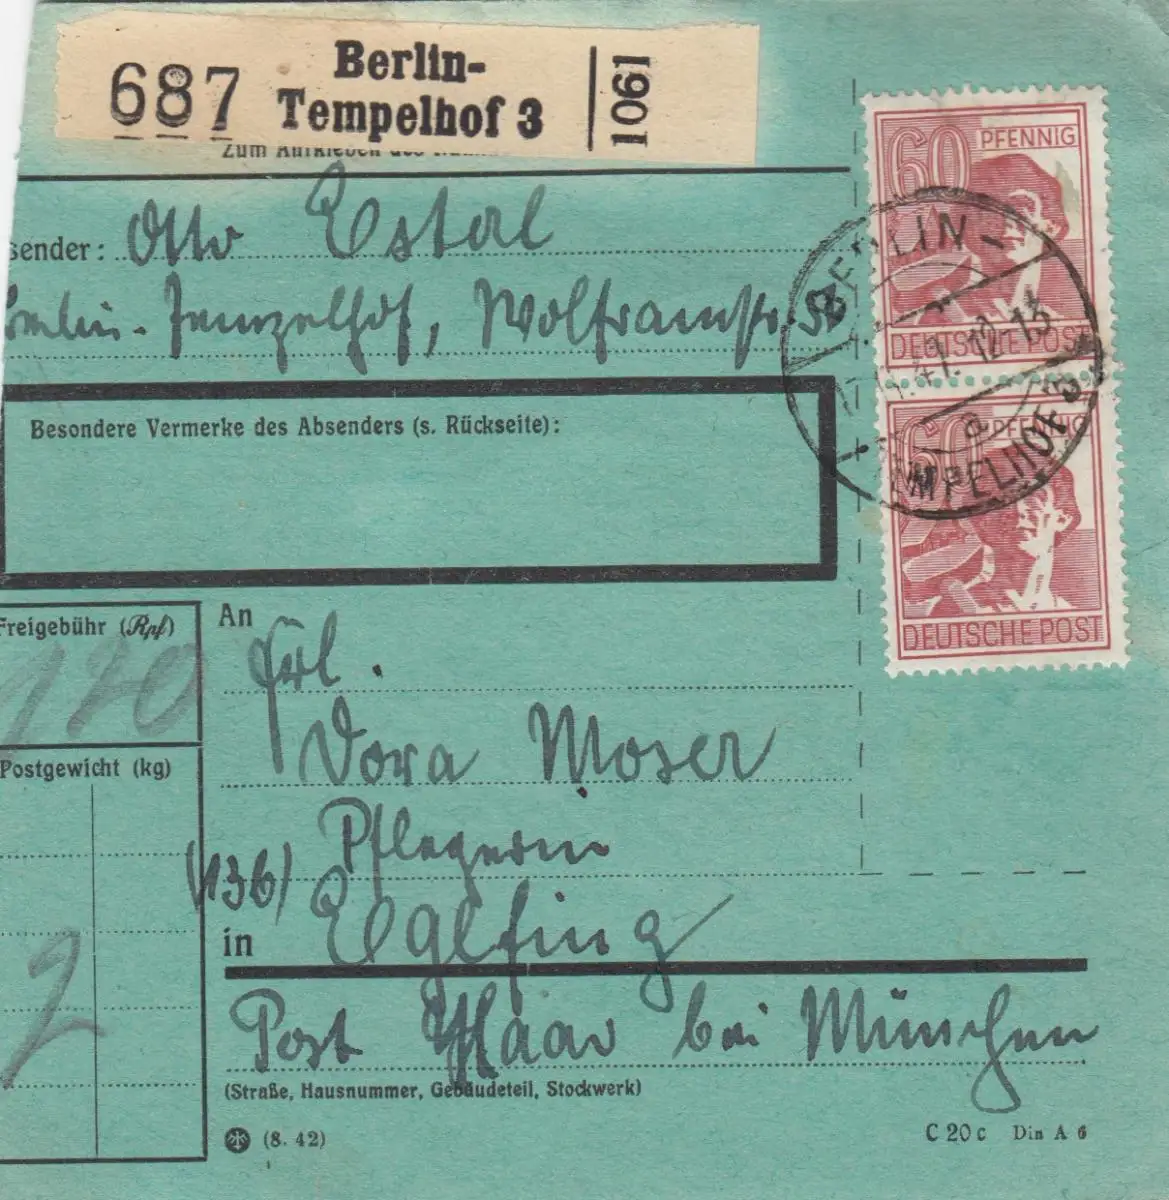 687 Berlin-
Tempelhof 3
1061
Zum Aufkleben des
sender: Otto Estal
Berlin-Tempelhof, Wolframstr.
Besondere Vermerke des Absenders (s. Rückseite):
60 PFENNIG
DEUTSCHE POST
60 PFENNIG
DEUTSCHE POST
BERLIN-
47. 12-13
a
TEMPELHOF 3
Freigebühr (Rpf)
120
Postgewicht (kg)
2
An
Frl.
Dora Moser
Pflegerin
(13b)
in Eglfing
Post Haar bei München
(Straße, Hausnummer, Gebäudeteil, Stockwerk)
(8. 42)
C 20 c Din A 6